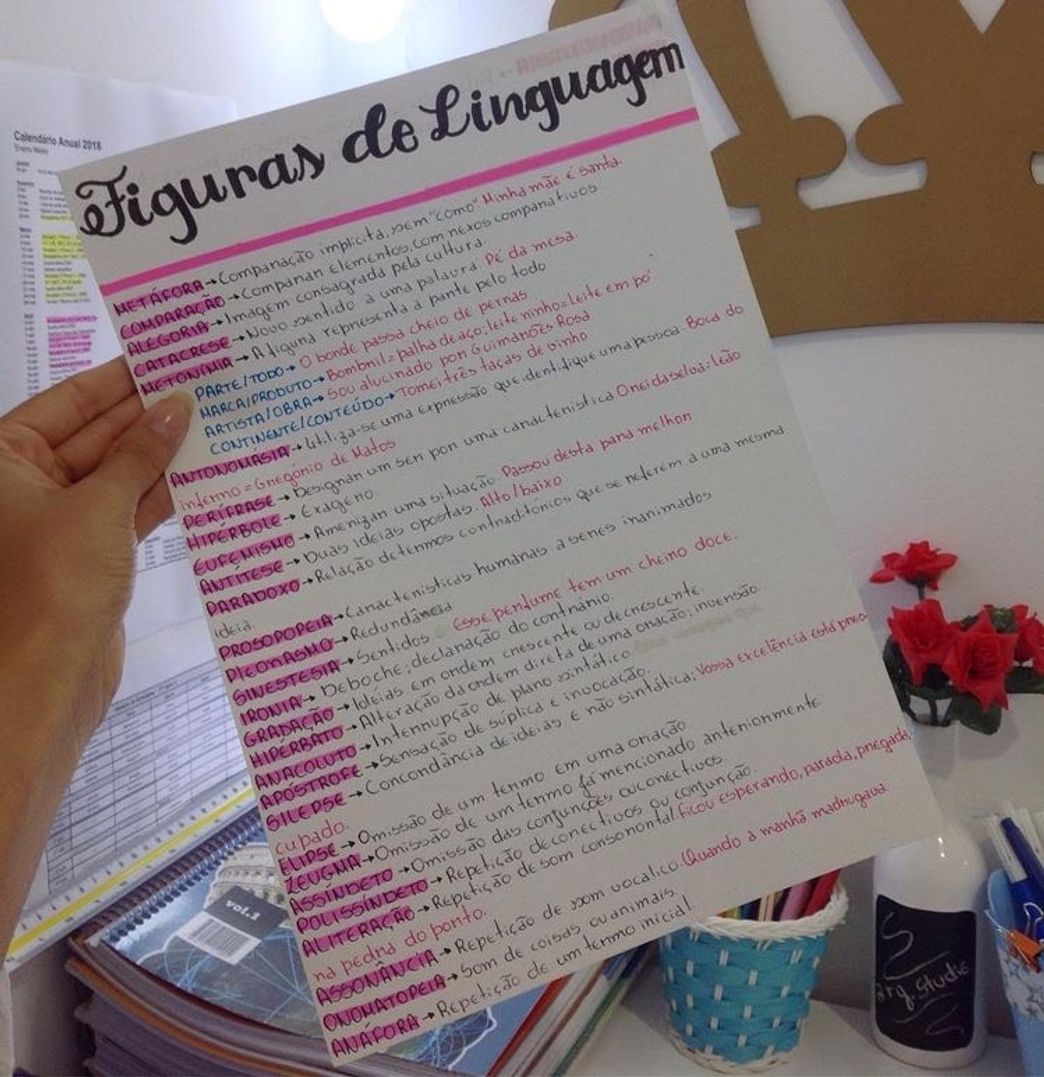 Calendário Anual 2018
Ensino Médio
Figuras de Linguagem
METÁFORA→Comparação implicita, sem "como" Minha mãe é santa.
COMPARAÇÃO→Comparar elementos, com nexos comparativos.
ALEGORIA→Imagem consagrada pela cultura.
CATACRESE→Novo sentido a uma palavra. Pé da mesa.
METONÍMIA→A figura representa a parte pelo todo
PARTE/TODO→O bonde passa cheio de pernas
MARCA/PRODUTO→Bombril=palha de aço; leite ninho=leite em pó
ARTISTA/OBRA→Sou alucinado por Guimarães Rosa
CONTINENTE/CONTEÚDO→Tomei três taças de vinho
ANTONOMÁSIA→Utiliza-se uma expressão que identifique uma pessoa. Boca do
inferno = Gregório de Matos
PERÍFRASE→Designar um ser por uma característica O rei da selva=leão
HIPERBOLE→Exagero.
EUFEMISMO→Amenizar uma situação. Passou desta para melhor
ANTÍTESE→Duas ideias opostas. Alto/baixo
PARADOXO→Relação de termos contraditórios que se referem a uma mesma
ideia.
PROSOPOPEIA→Características humanas a seres inanimados.
PLEONASMO→Redundância
SINESTESIA→Sentidos Esse perfume tem um cheiro doce.
IRONIA→Deboche; declaração do contrário.
GRADAÇÃO→Ideias em ordem crescente ou decrescente
HIPÉRBATO→Alteração da ordem direta de uma oração; inversão
ANACOLUTO→Interrupção de plano sintático.
APÓSTROFE→Sensação de súplica e invocação.
SILEPSE→Concordância de ideias e não sintática; Vossa excelência está preo
cupado.
ELIPSE→Omissão de um termo em uma oração.
ZEUGMA→Omissão de um termo já mencionado anteriormente
ASSÍNDETO→Omissão das conjunções ou conectivos.
POLISSÍNDETO→Repetição de conectivos ou conjunção
ALITERAÇÃO→Repetição de som consonontal. Ficou esperando, parada, pregada
na pedra do porto.
ASSONÂNCIA→Repetição de som vocalico. Quando a manhã madrugava
ONOMATOPEIA→Som de coisas ou animais.
ANÁFORA→Repetição de um termo inicial
vol.3
arq.studie